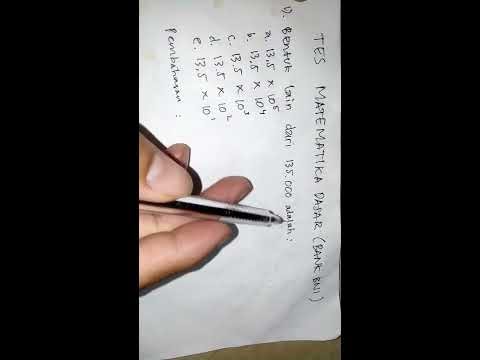 TES MATEMATIKA DASAR (BANK BNI)
1). Bentuk lain dari 135.000 adalah :
a. 13,5 x 10⁵
b. 13,5 x 10⁴
c. 13,5 x 10³
d. 13,5 x 10²
e. 13,5 x 10¹
Pembahasan :